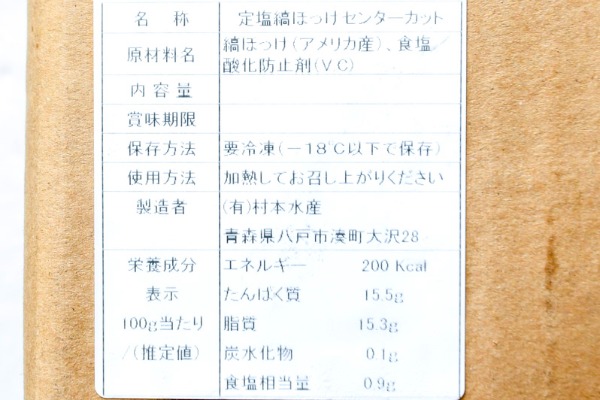 名称 定塩縞ほっけセンターカット
原材料名 縞ほっけ(アメリカ産)、食塩/
酸化防止剤(VC)
内容量
賞味期限
保存方法 要冷凍(-18℃以下で保存)
使用方法 加熱してお召し上がりください
製造者 (有)村本水産
青森県八戸市湊町大沢28
栄養成分 エネルギー 200 Kcal
表示 たんぱく質 15.5g
100g当たり 脂質 15.3g
/(推定値) 炭水化物 0.1g
食塩相当量 0.9g